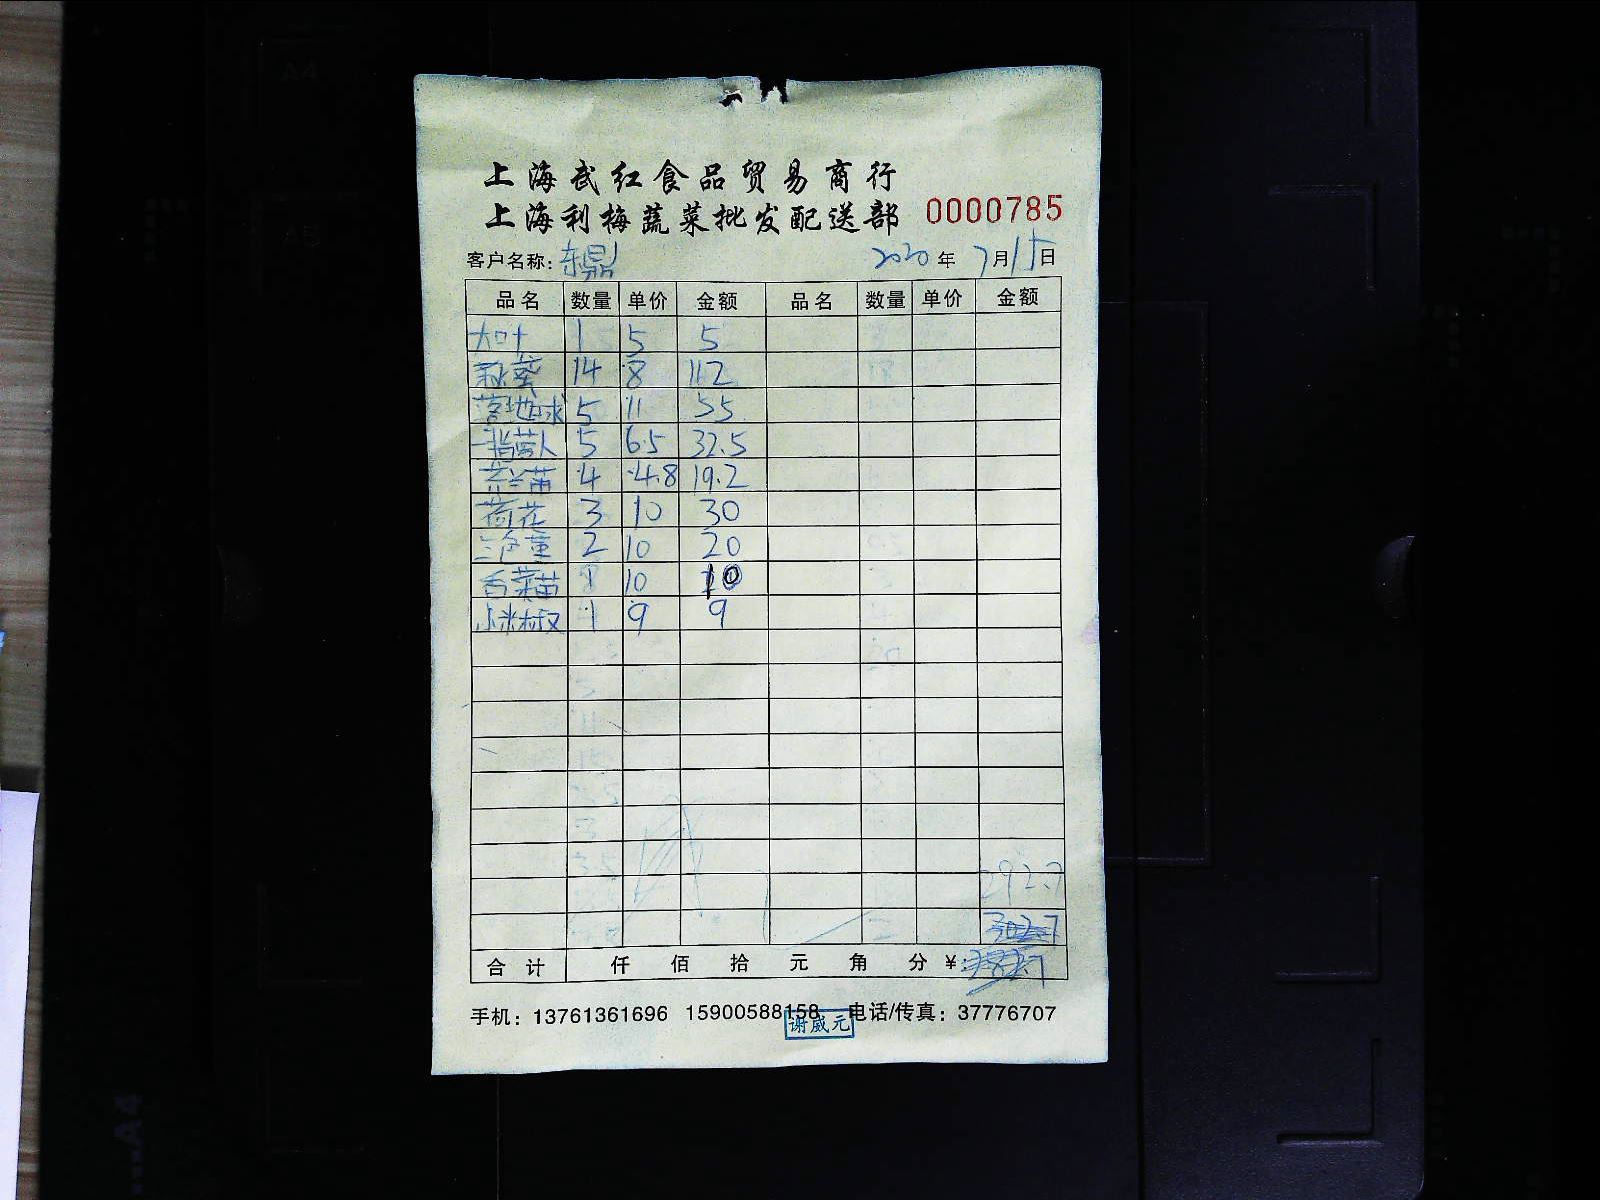 上海武红食品贸易商行
上海利梅蔬菜批发配送部 0000785
客户名称: 东鼎 2020年 7月15日
品名 数量 单价 金额 品名 数量 单价 金额
大叶 1 5 5
14 8 112
落地球 5 11 55
5 6.5 32.5
4 4.8 19.2
荷花 3 10 30
三色堇 2 10 20
香菜苗 1 10 10
小米椒 1 9 9
292.7
302.7
合计 仟 佰 拾 元 角 分 ¥:
手机: 13761361696 15900588158 电话/传真: 37776707
谢威元